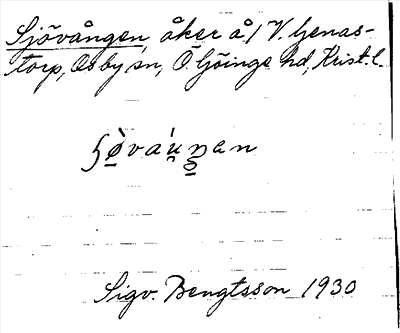 Sjövången, åker å/ V. Genas-
torp, Osby sn, Ö. Göinge hd, Krist. l.
Sigv. Bengtsson 1930